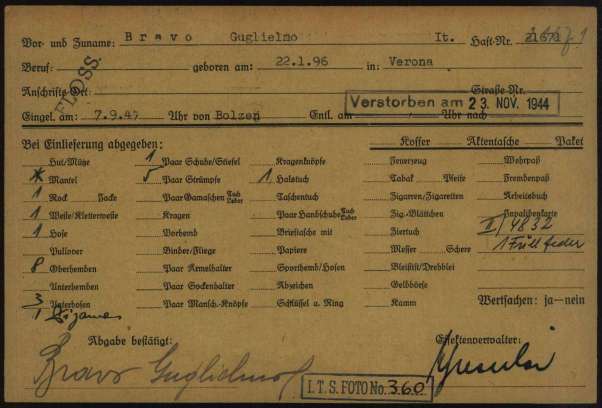 Vor- und Zuname: Bravo Guglielmo It. Haft-Nr. 21671
FLOSS.
Beruf: geboren am: 22.1.96 in: Verona
Anschrifts Ort: Straße Nr.
Verstorben am 23. NOV. 1944
Eingel. am: 7.9.4 Uhr von Bolzen Entl. am Uhr nach
Bei Einlieferung abgegeben: Koffer Aktentasche Paket
Hut/Mütze 1 Paar Schuhe/Stiefel Kragenknöpfe Feuerzeug Wehrpaß
Mantel 5 Paar Strümpfe 1 Halstuch Tabak Pfeife Fremdenpaß
1 Rock Jacke Paar Gamaschen Tuch Leder Taschentuch Zigarren/Zigaretten Arbeitsbuch
1 Weste/Kletterweste Kragen Paar Handschuhe Tuch Leder Zig.-Blättchen Invalidenkarte
1 Hose Vorhemd Brieftasche mit Ziertuch II/4832
Pullover Binder/Fliege Papiere Messer Schere 1 Füllfeder
8 Oberhemden Paar Ärmelhalter Sporthemd/Hosen Bleistift/Drehblei
Unterhemden Paar Sockenhalter Abzeichen Geldbörse
3 Unterhosen Paar Mansch.-Knöpfe Schlüssel a. Ring Kamm Wertsachen: ja—nein
1 Pijamas
Abgabe bestätigt: Effektenverwalter:
Bravo Guglielmo
I.T.S. FOTO No. 360